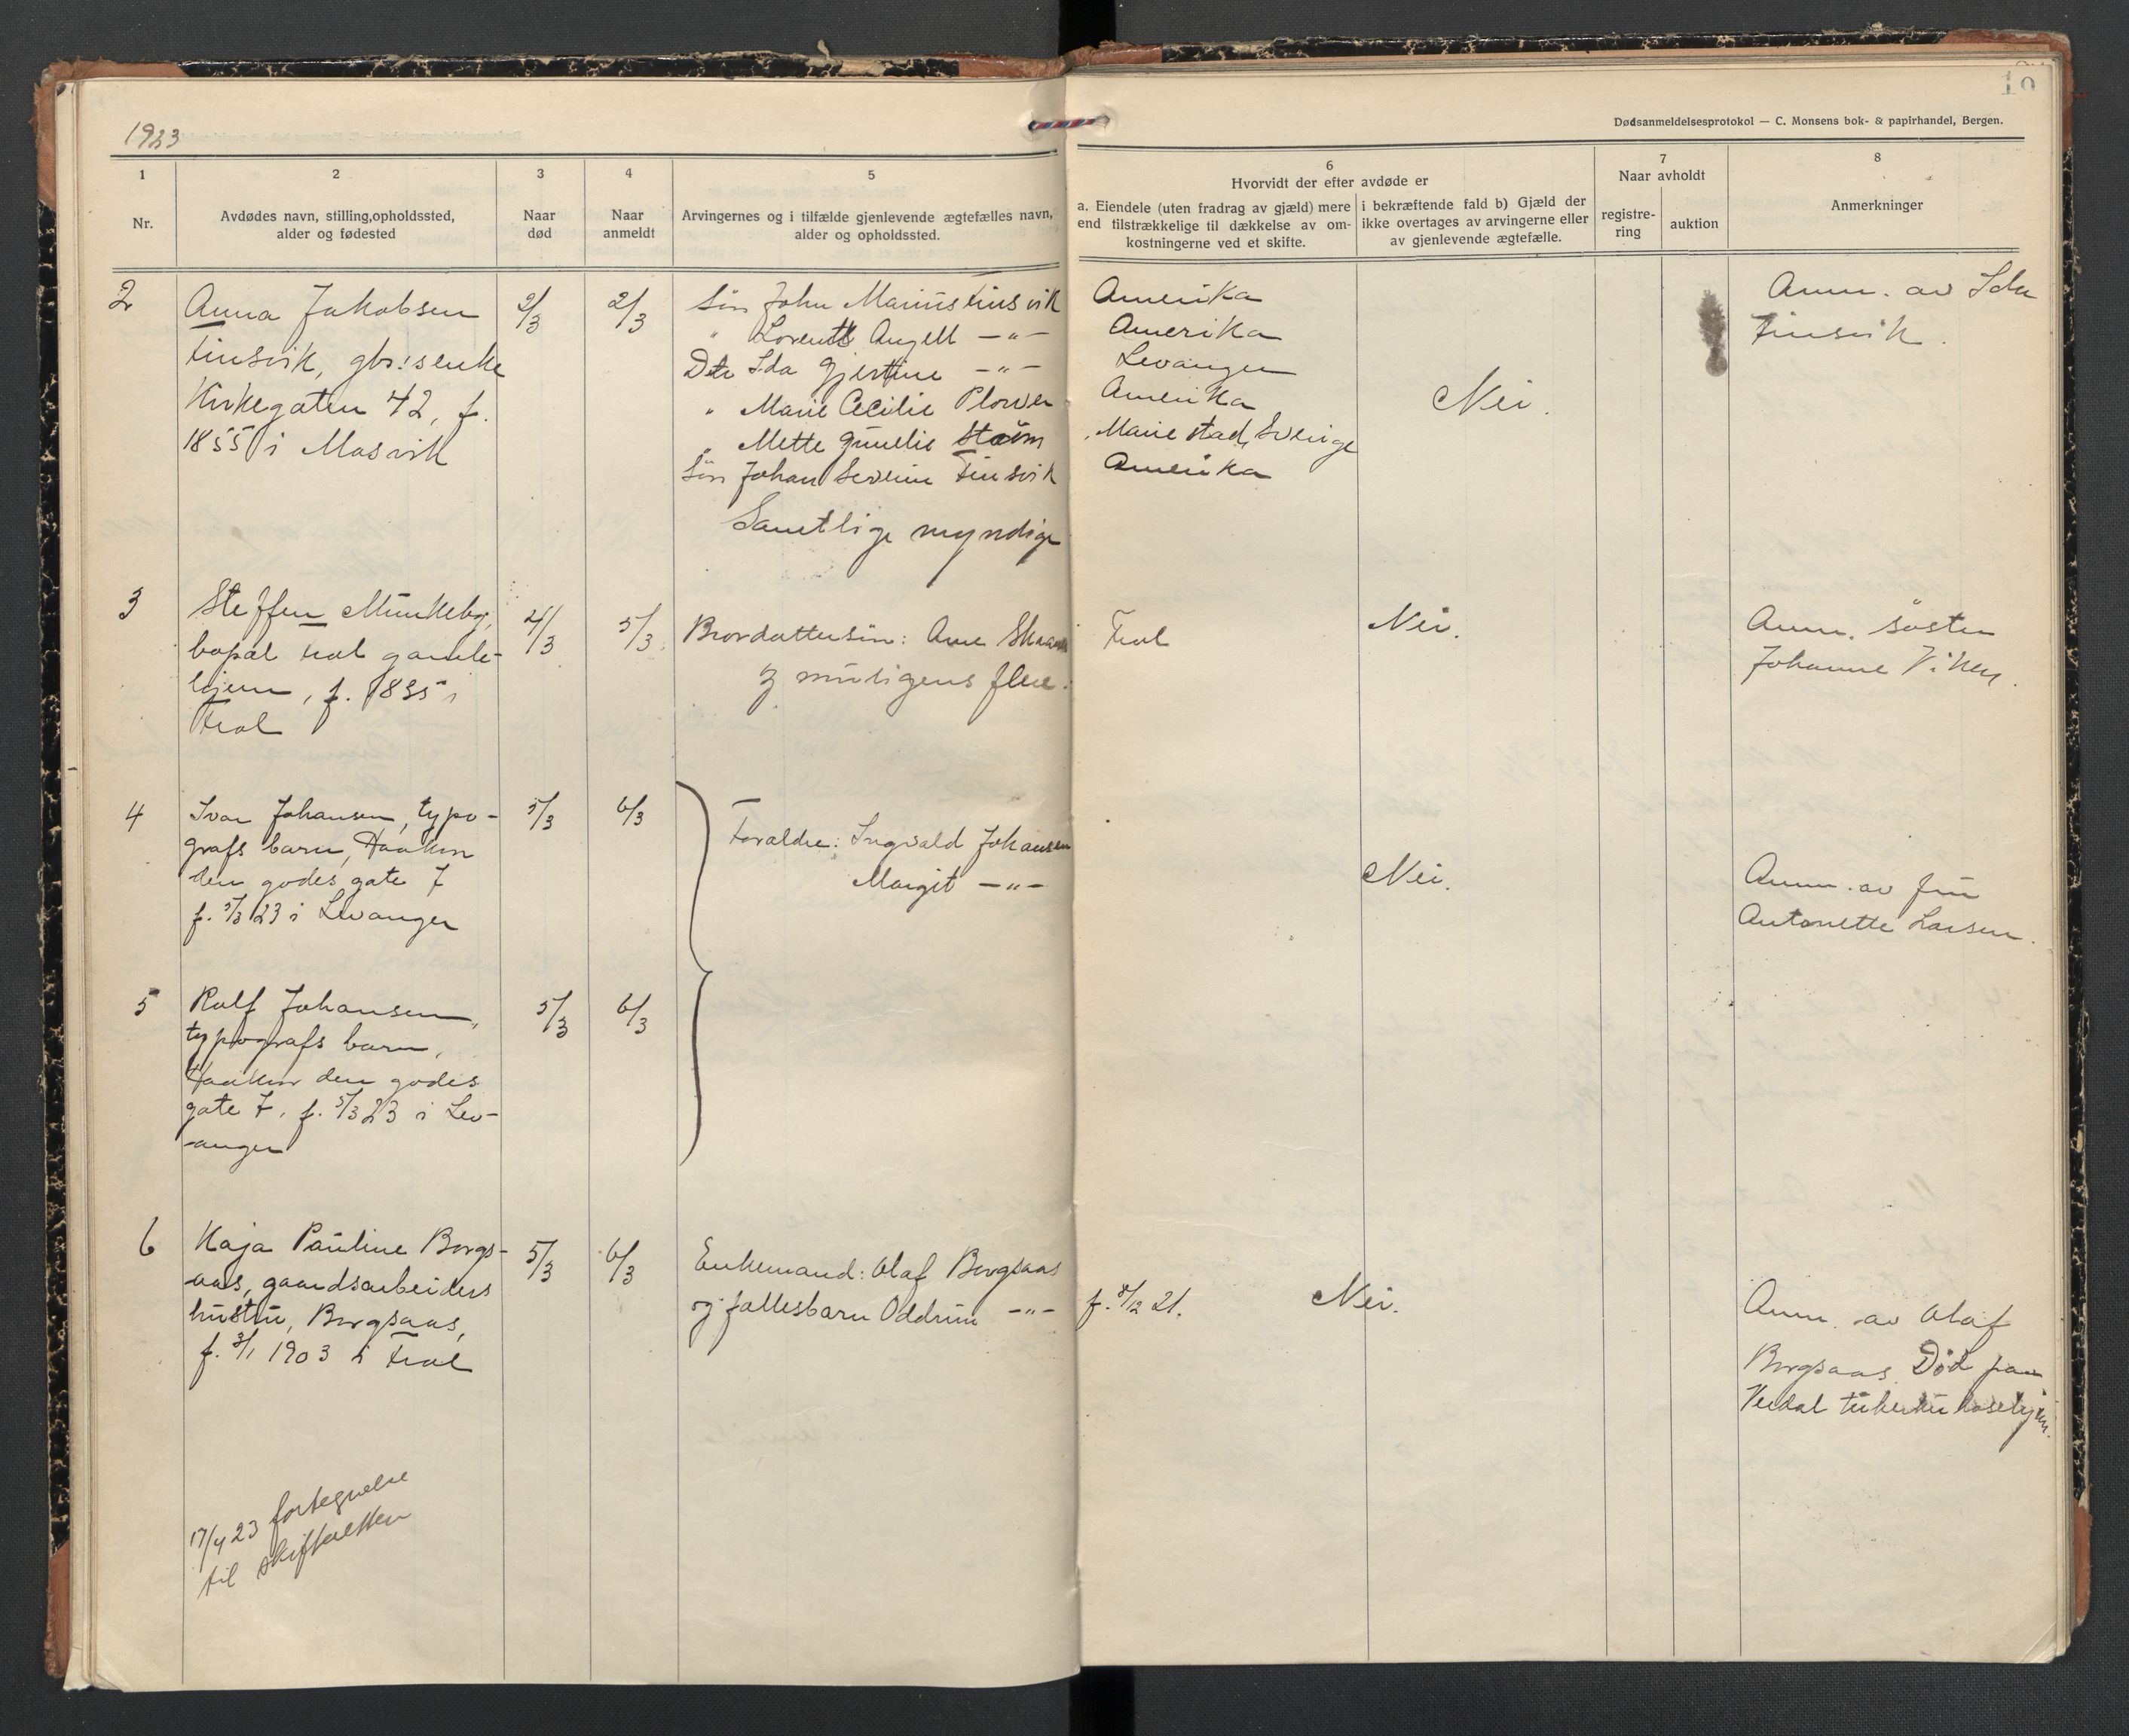 1923
19
Dødsanmeldelsesprotokol — C. Monsens bok- & papirhandel, Bergen.
1
2
3
4
5
6
7
8
Nr.
Avdødes navn, stilling, opholdssted,
alder og fødested
Naar
død
Naar
anmeldt
Arvingernes og i tilfælde gjenlevende ægtefælles navn,
alder og opholdssted.
Hvorvidt der efter avdøde er
a. Eiendele (uten fradrag av gjæld) mere
end tilstrækkelige til dækkelse av om-
kostningerne ved et skifte.
i bekræftende fald b) Gjæld der
ikke overtages av arvingerne eller
av gjenlevende ægtefælle.
Naar avholdt
registre-
ring
auktion
Anmerkninger
2
Anna Jakobsen
Finsvik, gbr:s enke
Kirkegaten 42, f.
1855 i Mosvik
2/3
2/3
Søn John Marius Finsvik
" Lorents Angell —"—
Dtr Ida Gjertine —"—
" Marie Cecilie
" Mette Strøm
Søn Johan Severin Finsvik
Samtlige myndige
Amerika
Amerika
Levanger
Amerika
Marie stad, Sverige
Amerika
Nei.
Anm. av Ida
Finsvik.
3
Steffen Munkeby,
bopæl Frol gamle-
hjem, f. 1835 i
Frol
4/3
5/3
Brordattersøn: Arne
og muligens flere.
Frol
Nei.
Anm. søster
Johanne Viken.
4
Ivar Johansen, typo-
grafs barn, Haakon
den godes gate 7
f. 5/3 23 i Levanger
5/3
6/3
Forældre: Ingvald Johansen
Margit —"—
Nei.
Anm. av fru
Antonette Larsen.
5
Rolf Johansen,
typografs barn,
Haakon den godes
gate 7, f. 5/3 23 i Lev-
anger
5/3
6/3
6
Kaja Pauline Borgs-
aas, gaardsarbeiders
hustru, Borgsaas,
f. 3/1 1903 i Frol
5/3
6/3
Enkemand: Olaf Borgsaas
og fællesbarn Oddrun —"—
f. 8/12 21.
Nei.
Anm. av Olaf
Borgsaas. Død paa
Verdal tuberkulosehjem.
17/4 23 fortegnelse
til skifteretten